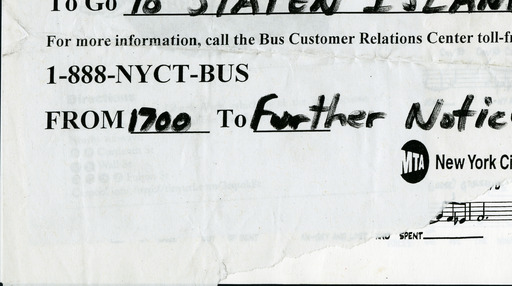 To Go TO STATEN ISLAN
For more information, call the Bus Customer Relations Center toll-f
1-888-NYCT-BUS
FROM 1700 To Further Notic
MTA New York Ci
SPENT